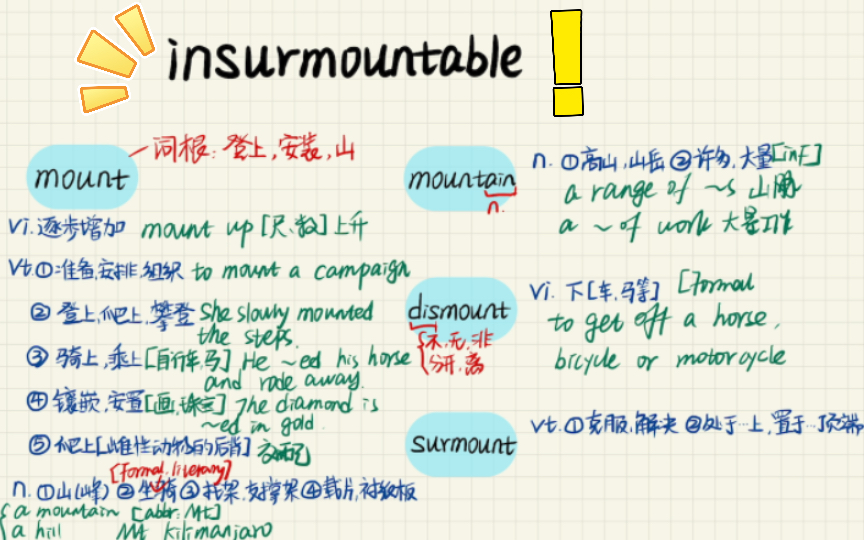 insurmountable
mount
词根：登上，安装，山
vi.逐步增加 mount up [尺、数]上升
vt.①准备,安排,组织 to mount a campaign
②登上,爬上,攀登 She slowly mounted
the steps.
③骑上,乘上[自行车,马] He ~ed his horse
and rode away.
④镶嵌,安置[画,珠宝] The diamond is
~ed in gold.
⑤爬上[雄性动物的后背] 交配
[Formal. literary]
n.①山(峰)②坐骑③托架,支撑架④载片,衬纸板
{a mountain [abbr. Mt]
a hill Mt Kilimanjaro
mountain
n.
n.①高山,山岳②许多,大量[inf]
a range of ~s 山脉
a ~ of work 大量工作
dismount
{不,无,非
分开,离
vi.下[车,马等] [Formal
to get off a horse,
bicycle or motorcycle
surmount
vt.①克服,解决②处于…上,置于…顶端